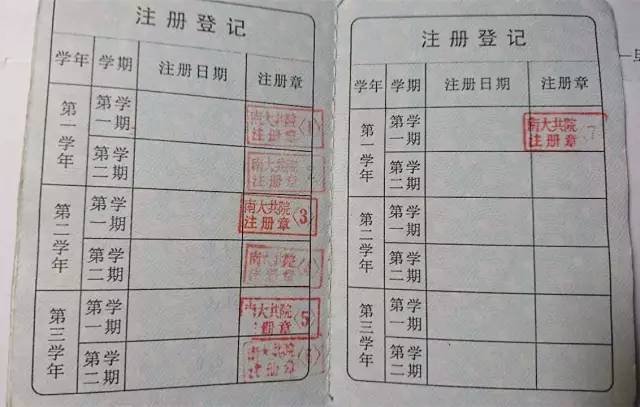 注册登记
学年 学期 注册日期 注册章
第一学年 第一学期 南大共院 注册章 〈1〉
第二学期 南大共院 注册章
第二学年 第一学期 南大共院 注册章 〈3〉
第二学期 南大 注册章
第三学年 第一学期 大共院 册章 〈5〉
第二学期
注册登记
学年 学期 注册日期 注册章
第一学年 第一学期 南大共院 注册章 7
第二学期
第二学年 第一学期
第二学期
第三学年 第一学期
第二学期